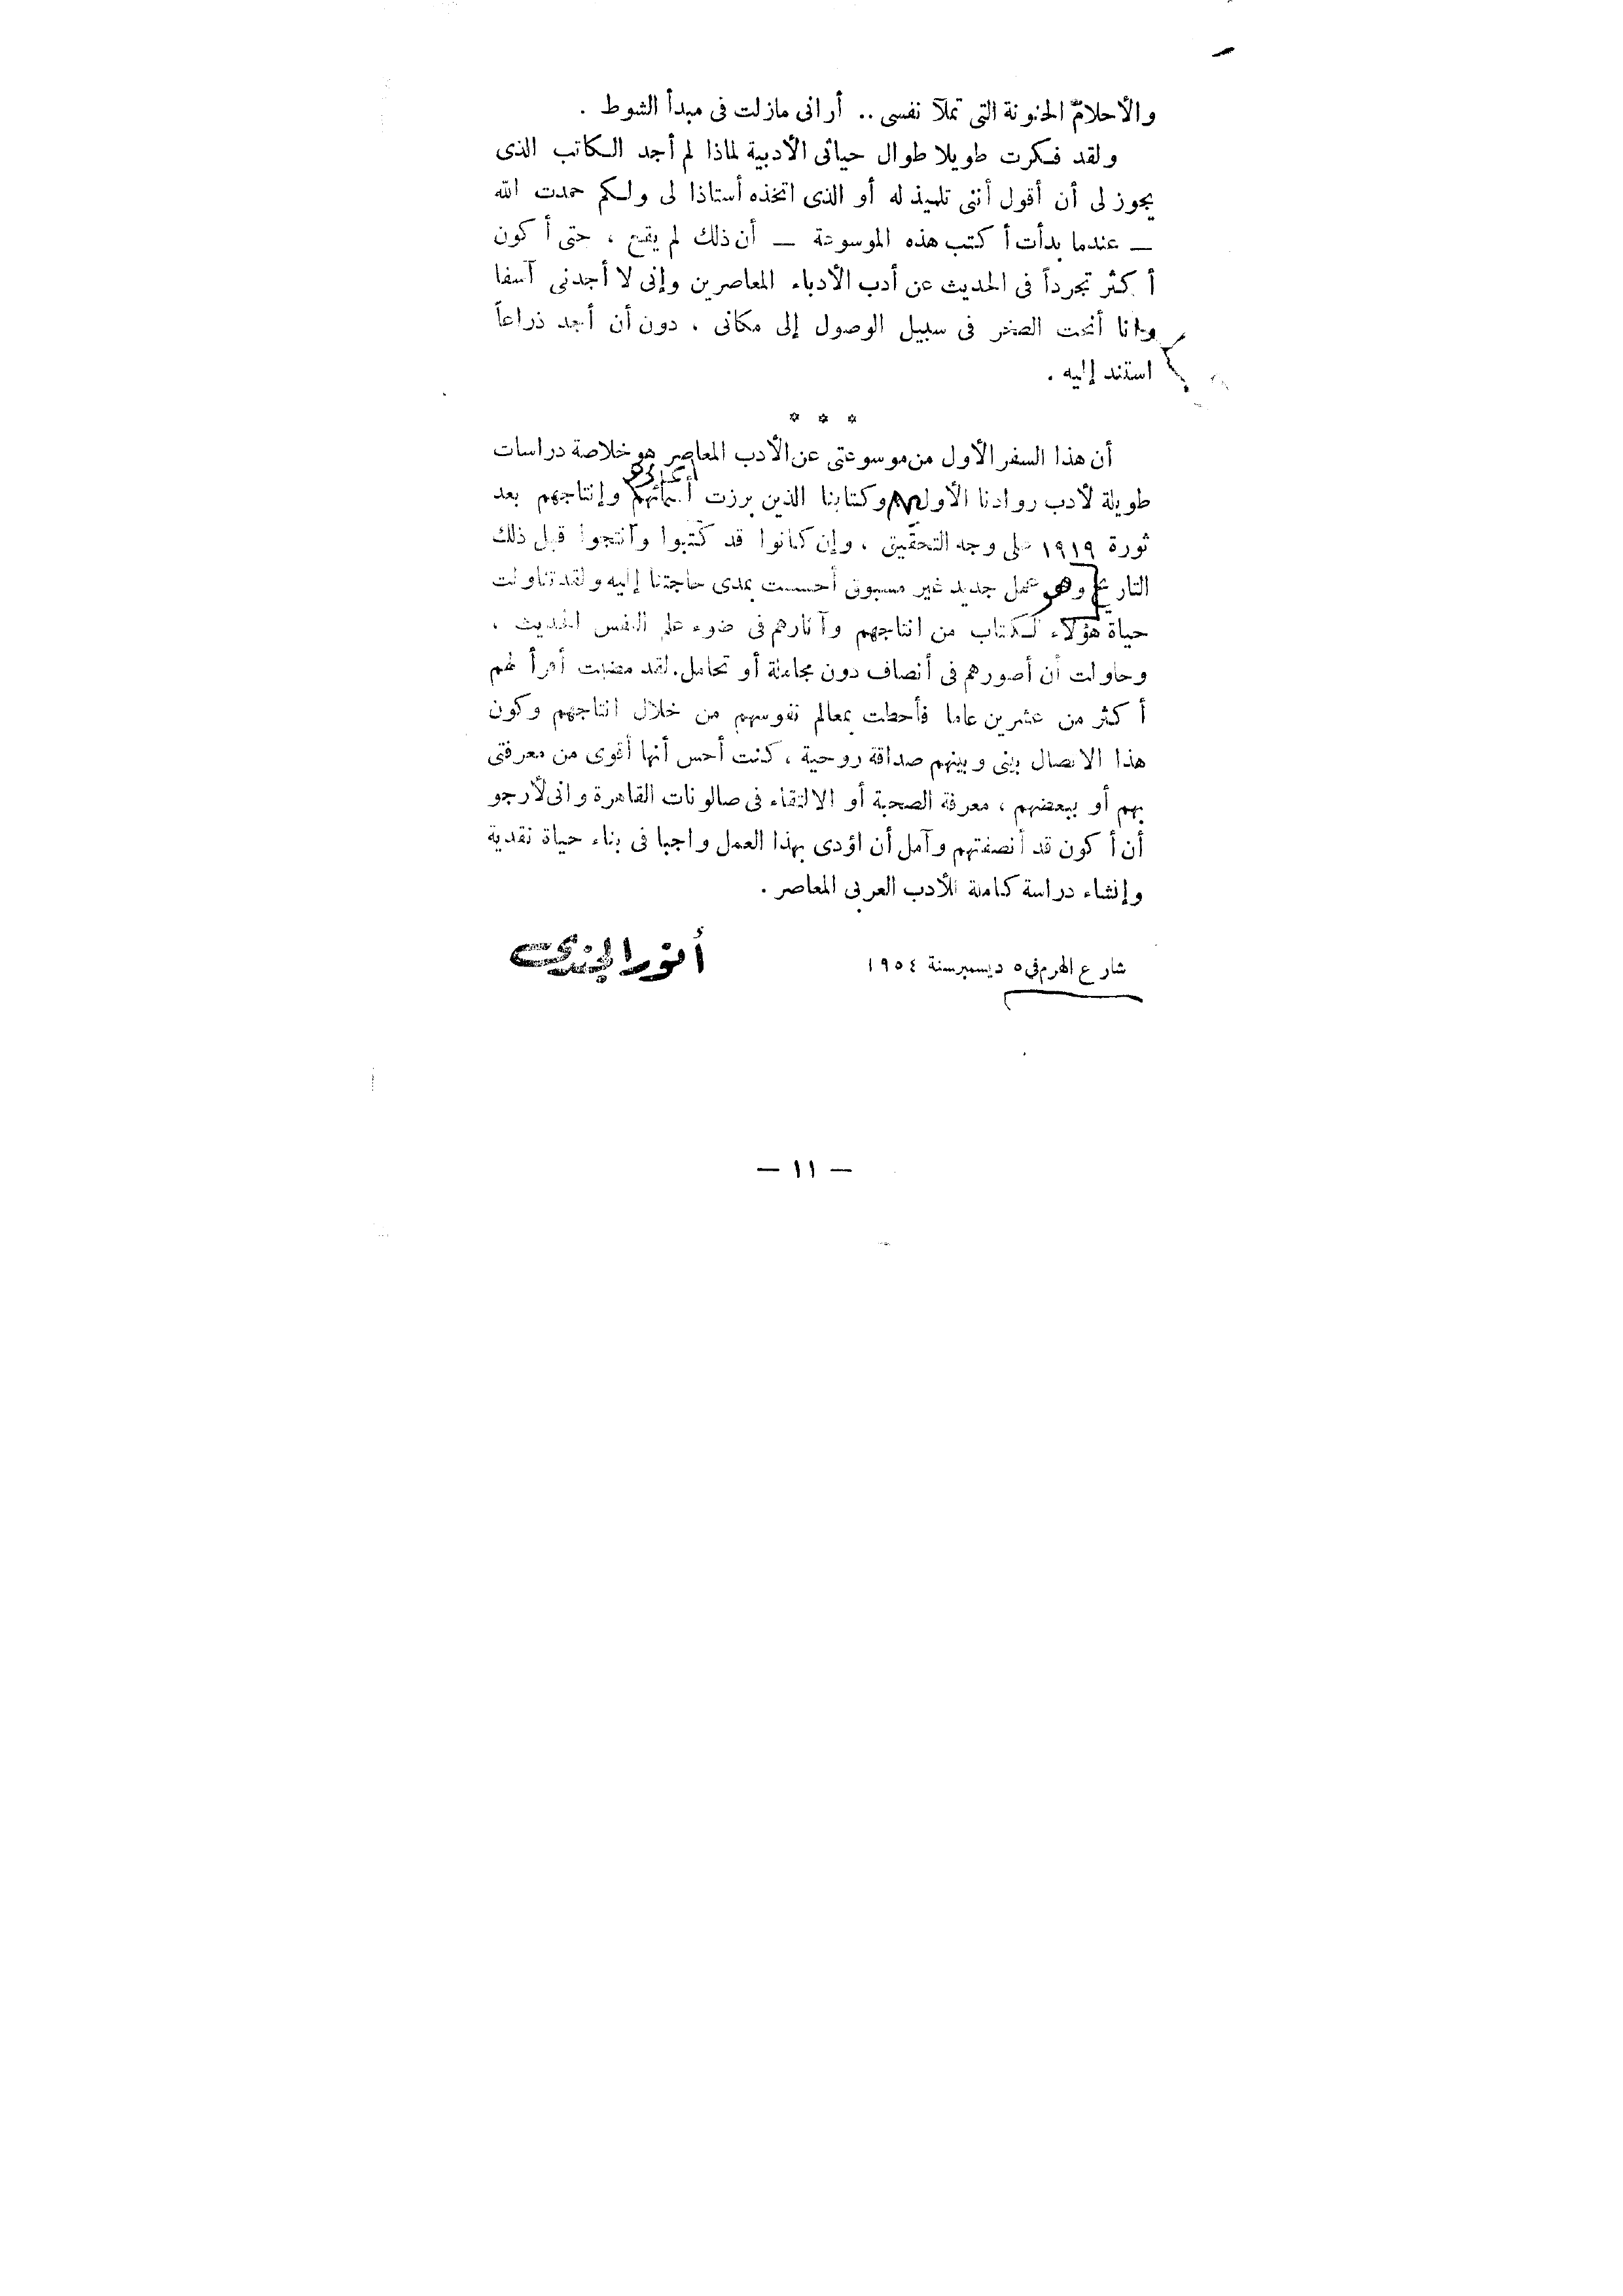 والأحلام المجنونة التى تملآ نفسى .. أرانى مازلت فى مبدأ الشوط .
ولقد فكرت طويلا طوال حياتى الأدبية لماذا لم أجد الكاتب الذى
يجوز لى أن أقول أننى تلميذ له أو الذى اتخذه أستاذا لى ولكم حمدت الله
— عندما بدأت أكتب هذه الموسوعة — أن ذلك لم يقع ، حتى أكون
أكثر تجرداً فى الحديث عن أدب الأدباء المعاصرين وإنى لا أجدنى آسفا
وانا أنحت الصخر فى سبيل الوصول إلى مكانى ، دون أن أجد ذراعاً
استند إليه .
* * *
أن هذا السفر الأول من موسوعتى عن الأدب المعاصر هو خلاصة دراسات
طويلة لأدب روادنا الأول وكتابنا الذين برزت أسمائهم وإنتاجهم بعد
ثورة ١٩١٩ على وجه التحقيق ، وإن كانوا قد كتبوا وأنتجوا قبل ذلك
التاريخ وهو عمل جديد غير مسبوق أحسست بمدى حاجتنا إليه ولقد تناولت
حياة هؤلاء الكتاب من انتاجهم وآثارهم فى ضوء علم النفس الحديث ،
وحاولت أن أصورهم فى أنصاف دون مجاملة أو تحامل. لقد مضيت أقرأ لهم
أكثر من عشرين عاما فأحطت بمعالم نفوسهم من خلال انتاجهم وكون
هذا الاتصال بينى وبينهم صداقة روحية ، كنت أحس أنها أقوى من معرفتى
بهم أو ببعضهم ، معرفة الصحبة أو الالتقاء فى صالونات القاهرة وانى لأرجو
أن أكون قد أنصفتهم وآمل أن اؤدى بهذا العمل واجبا فى بناء حياة نقدية
وإنشاء دراسة كاملة للأدب العربى المعاصر .
شارع الهرم فى ٥ ديسمبر سنة ١٩٥٤
أنور الجندى
— ١١ —